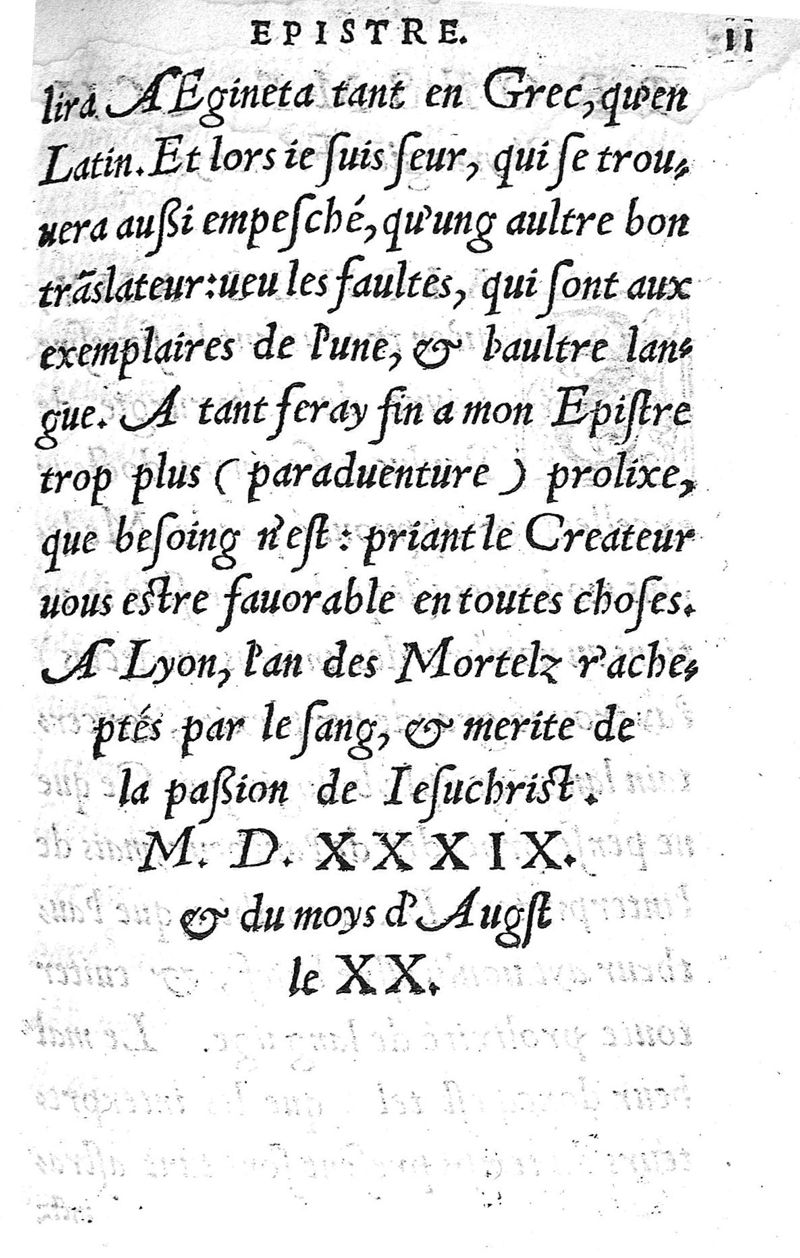 EPISTRE. 11
lira AEgineta tant en Grec, qu'en
Latin. Et lors ie suis seur, qui se trou-
uera außi empesché, qu'ung aultre bon
trãslateur: ueu les faultes, qui sont aux
exemplaires de l'une, & l'aultre lan-
gue. A tant feray fin a mon Epistre
trop plus ( paraduenture ) prolixe,
que besoing n'est : priant le Createur
uous estre fauorable en toutes choses.
A Lyon, l'an des Mortelz r'ache-
ptés par le sang, & merite de
la paßion de Iesuchrist.
M. D. XXXIX.
& du moys d'Augst
le XX.